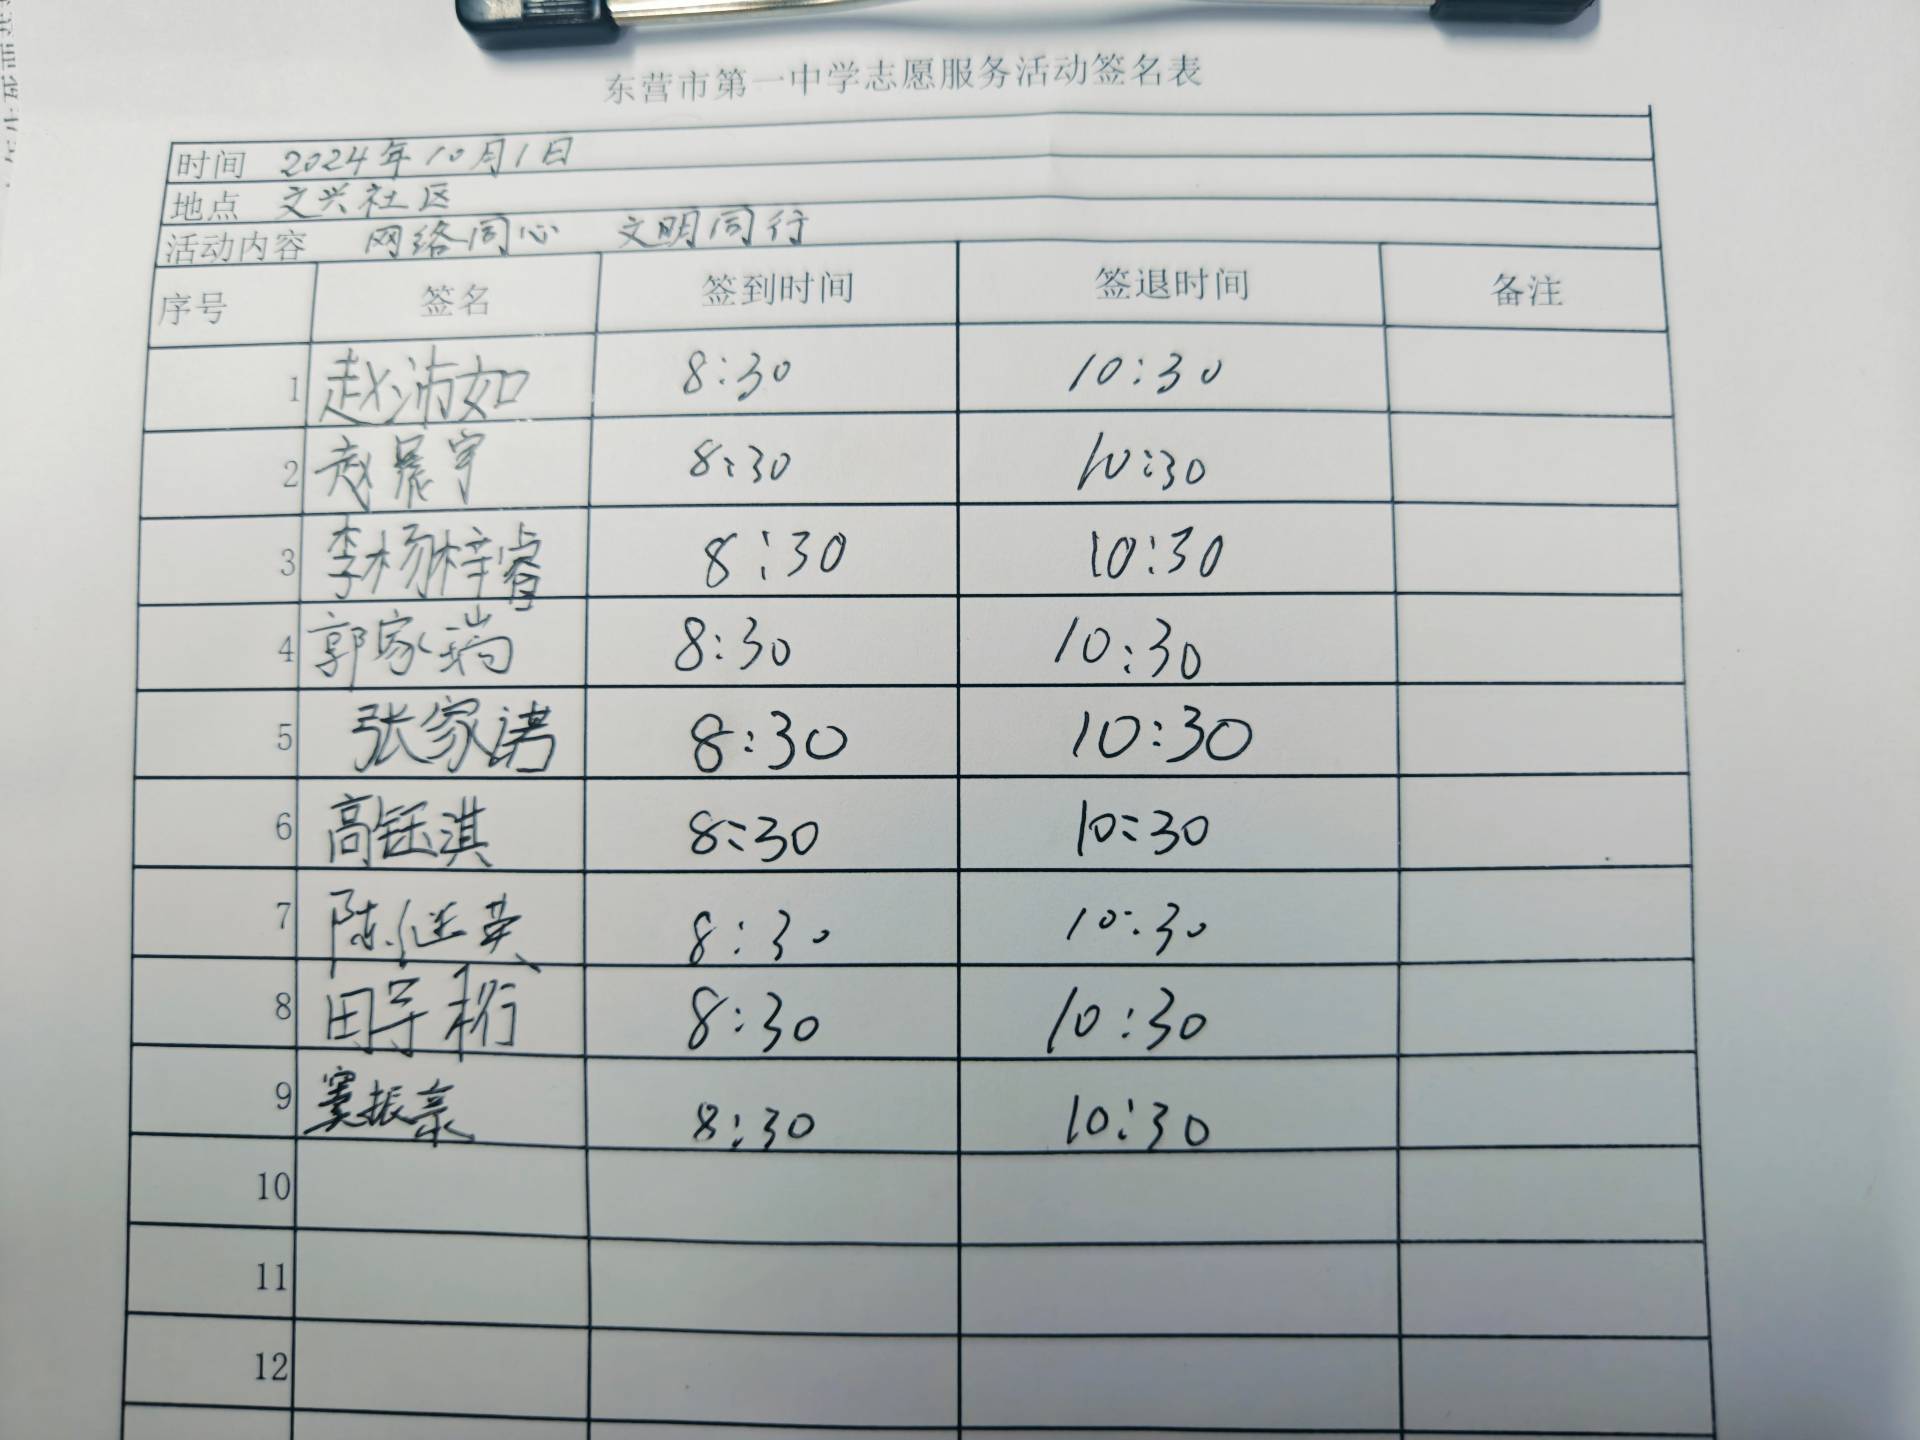 东营市第一中学志愿服务活动签名表
时间 2024年10月1日
地点 文兴社区
活动内容 网络同心 文明同行
序号 签名 签到时间 签退时间 备注
1 赵沛如 8:30 10:30
2 赵晨宇 8:30 10:30
3 李杨梓睿 8:30 10:30
4 郭家瑞 8:30 10:30
5 张家诺 8:30 10:30
6 高钰淇 8:30 10:30
7 陈继英 8:30 10:30
8 田宇桁 8:30 10:30
9 窦振豪 8:30 10:30
10
11
12